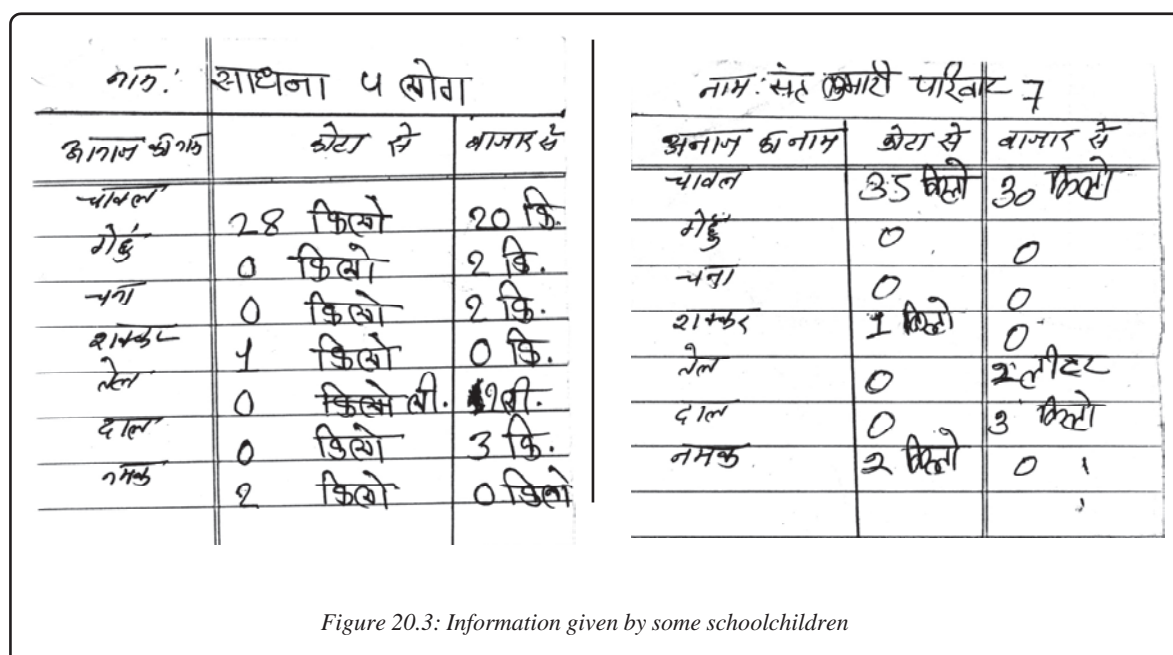 नाम: साधना ५ लोग
अनाज का नाम कोटा से बाजार से
चावल 28 किलो 20 कि.
गेहुं 0 किलो 2 कि.
चना 0 किलो 2 कि.
शक्कर 1 किलो 0 कि.
तेल 0 ली. ली.
दाल 0 किलो 3 कि.
नमक 2 किलो 0 किलो
नाम: कुमारी परिवार 7
अनाज का नाम कोटा से बाजार से
चावल 35 किलो 30 किलो
गेहुं 0 0
चना 0 0
शक्कर 1 किलो 0
तेल 0 2 लीटर
दाल 0 3 किलो
नमक 2 किलो 0
Figure 20.3: Information given by some schoolchildren